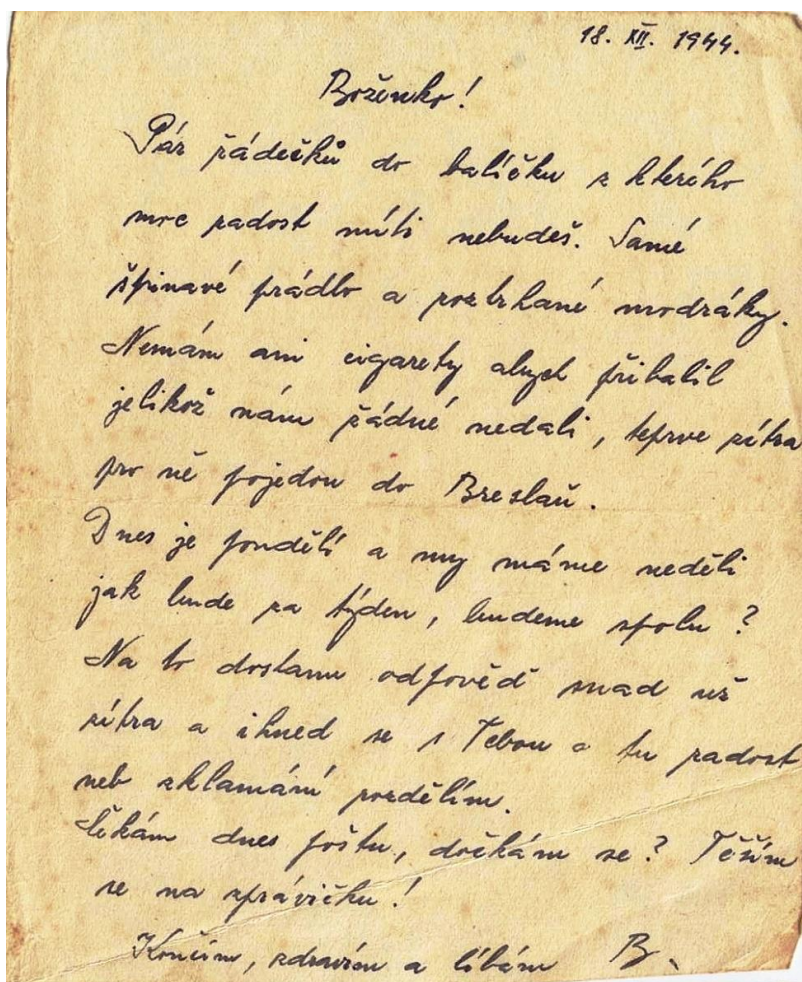 18. XII. 1944.
Boženko!
Pár řádečků do balíčku z kterého
moc radost míti nebudeš. Samé
špinavé prádlo a roztrhané modráky.
Nemám ani cigarety abych přibalil
jelikož nám žádné nedali, teprve zítra
pro ně pojedou do Breslaŭ.
Dnes je pondělí a my máme neděli
jak bude za týden, budeme spolu?
Na to dostanu odpověď snad už
zítra a ihned se s Tebou o tu radost
neb zklamání rozdělím.
Čekám dnes poštu, dočkám se? Těším
se na zprávičku!
Končím, zdravím a líbám B.